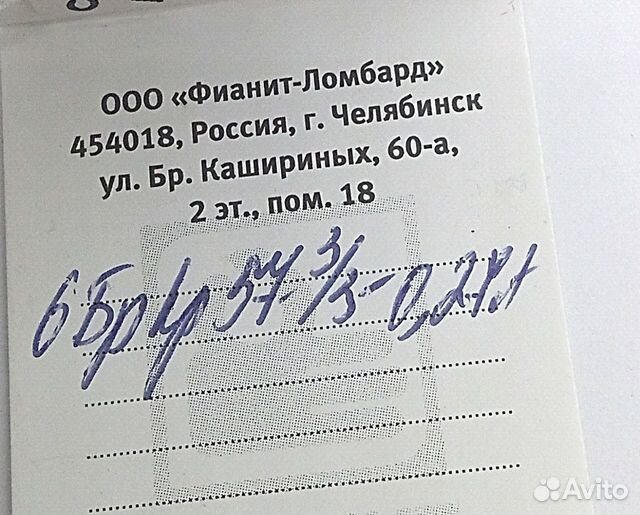 ООО «Фианит-Ломбард»
454018, Россия, г. Челябинск
ул. Бр. Кашириных, 60-а,
2 эт., пом. 18
6 Бр Кр 57- 3/3 - 0,24
Avito